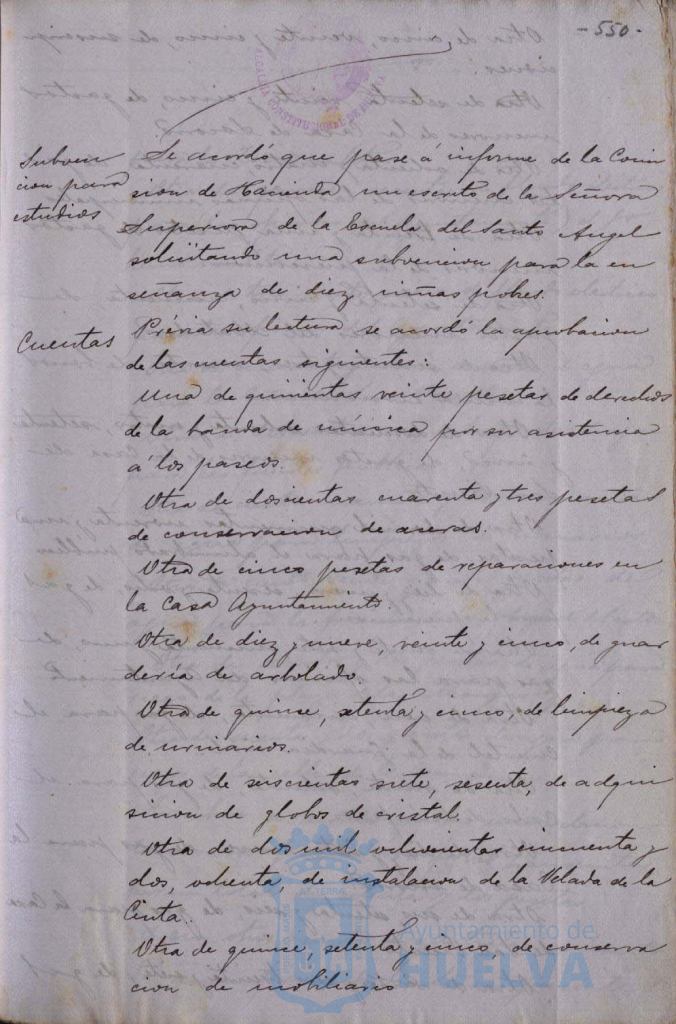 - 550 -
ALCALDIA CONSTITUCIONAL DE HUELVA
Subven
cion para
estudios
Se acordó que pase á informe de la Comi
sion de Hacienda un escrito de la Señora
Superiora de la Escuela del Santo Angel
solicitando una subvencion para la en
señanza de diez niñas pobres.
Cuentas
Prévia su lectura se acordó la aprobacion
de las cuentas siguientes:
Una de quinientas veinte pesetas de derechos
de la banda de música por su asistencia
á los paseos.
Otra de doscientas cuarenta y tres pesetas
de conservacion de aceras.
Otra de cinco pesetas de reparaciones en
la Casa Ayuntamiento.
Otra de diez y nueve, veinte y cinco, de guar
dería de arbolado.
Otra de quince, setenta y cinco, de limpieza
de urinarios.
Otra de seiscientas siete, sesenta, de adqui
sicion de globos de cristal.
Otra de dos mil ochocientas cincuenta y
dos, ochenta, de instalacion de la Velada de la
Cinta.
Otra de quince, setenta y cinco, de conserva
cion de mobiliario
Ayuntamiento de
HUELVA